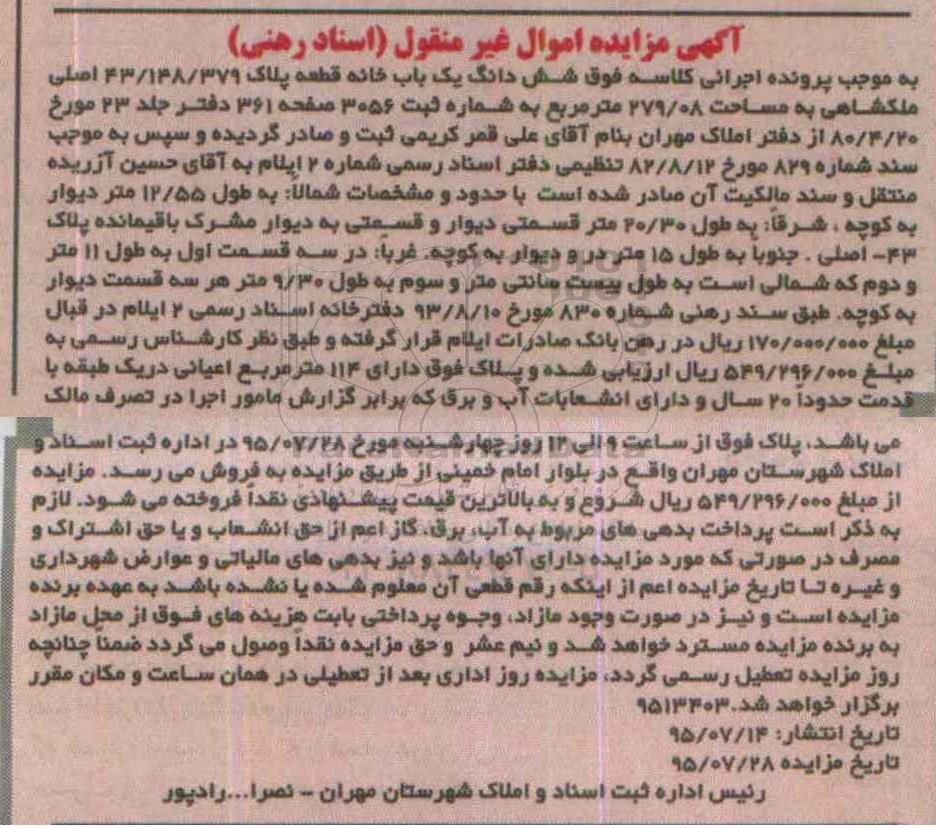 آگهی مزایده اموال غیر منقول (اسناد رهنی)
به موجب پرونده اجرائی کلاسه فوق شش دانگ یک باب خانه قطعه پلاک ۴۳/۱۴۸/۳۷۹ اصلی
ملکشاهی به مساحت ۲۷۹/۰۸ مترمربع به شماره ثبت ۳۰۵۶ صفحه ۳۶۱ دفتر جلد ۲۳ مورخ
۸۰/۴/۲۰ از دفتر املاک مهران بنام آقای علی قمر کریمی ثبت و صادر گردیده و سپس به موجب
سند شماره ۸۲۹ مورخ ۸۲/۸/۱۲ تنظیمی دفتر اسناد رسمی شماره ۲ ایلام به آقای حسین آزریده
منتقل و سند مالکیت آن صادر شده است با حدود و مشخصات شمالاً: به طول ۱۲/۵۵ متر دیوار
به کوچه ، شرقاً: به طول ۲۰/۳۰ متر قسمتی دیوار و قسمتی به دیوار مشرک باقیمانده پلاک
۴۳- اصلی . جنوباً به طول ۱۵ متر در و دیوار به کوچه. غرباً: در سه قسمت اول به طول ۱۱ متر
و دوم که شمالی است به طول بیست سانتی متر و سوم به طول ۹/۳۰ متر هر سه قسمت دیوار
به کوچه. طبق سند رهنی شماره ۸۳۰ مورخ ۹۳/۸/۱۰ دفترخانه اسناد رسمی ۲ ایلام در قبال
مبلغ ۱۷۰/۰۰۰/۰۰۰ ریال در رهن بانک صادرات ایلام قرار گرفته و طبق نظر کارشناس رسمی به
مبلغ ۵۴۹/۲۹۶/۰۰۰ ریال ارزیابی شده و پلاک فوق دارای ۱۱۴ مترمربع اعیانی دریک طبقه با
قدمت حدوداً ۲۰ سال و دارای انشعابات آب و برق که برابر گزارش مامور اجرا در تصرف مالک
می باشد، پلاک فوق از ساعت ۹ الی ۱۲ روز چهارشنبه مورخ ۹۵/۰۷/۲۸ در اداره ثبت اسناد و
املاک شهرستان مهران واقع در بلوار امام خمینی از طریق مزایده به فروش می رسد. مزایده
از مبلغ ۵۴۹/۲۹۶/۰۰۰ ریال شروع و به بالاترین قیمت پیشنهادی نقداً فروخته می شود. لازم
به ذکر است پرداخت بدهی های مربوط به آب، برق، گاز اعم از حق انشعاب و یا حق اشتراک و
مصرف در صورتی که مورد مزایده دارای آنها باشد و نیز بدهی های مالیاتی و عوارض شهرداری
و غیره تا تاریخ مزایده اعم از اینکه رقم قطعی آن معلوم شده یا نشده باشد به عهده برنده
مزایده است و نیز در صورت وجود مازاد، وجوه پرداختی بابت هزینه های فوق از محل مازاد
به برنده مزایده مسترد خواهد شد و نیم عشر و حق مزایده نقداً وصول می گردد ضمناً چنانچه
روز مزایده تعطیل رسمی گردد، مزایده روز اداری بعد از تعطیلی در همان ساعت و مکان مقرر
برگزار خواهد شد.۹۵۱۳۴۰۳
تاریخ انتشار: ۹۵/۰۷/۱۴
تاریخ مزایده ۹۵/۰۷/۲۸
رئیس اداره ثبت اسناد و املاک شهرستان مهران - نصرا...رادپور